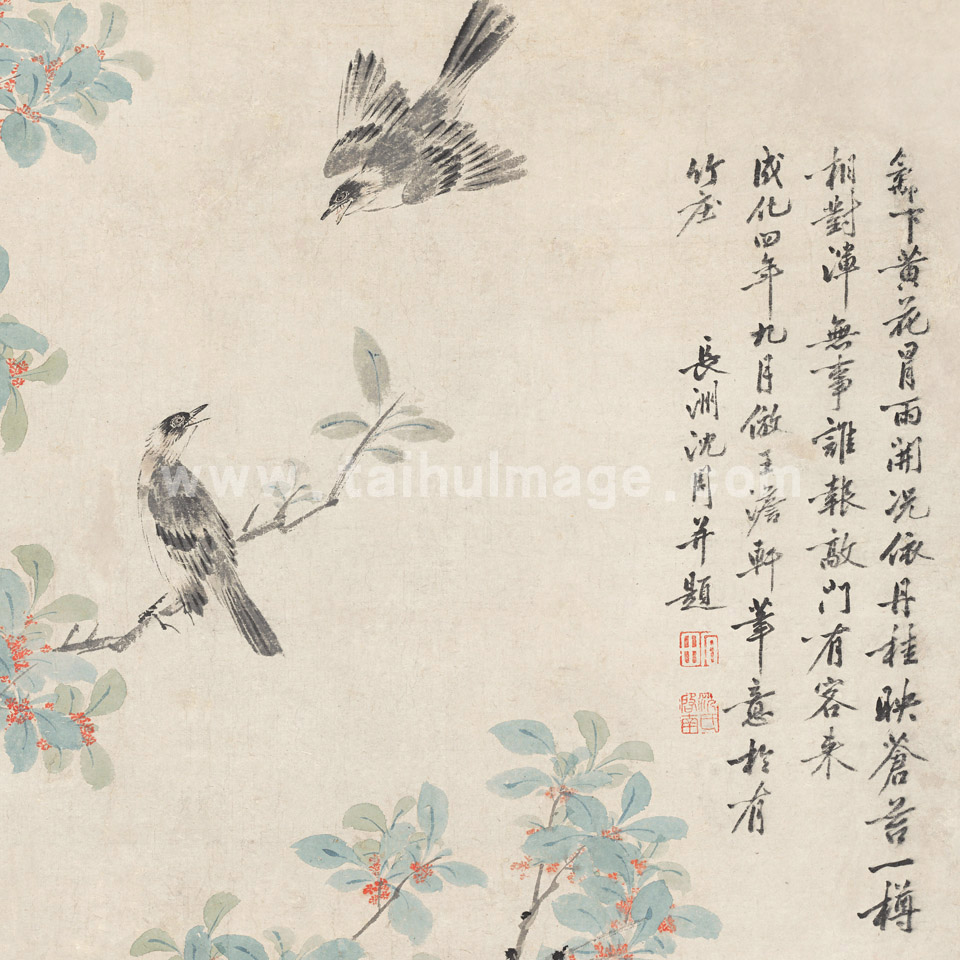 籬下黄花冒雨開况依丹桂映蒼苔一樽
相對渾無事誰報敲門有客来
成化四年九月倣王澹軒筆意於有
竹庄
長洲沈周并題
www.taihuImage.com